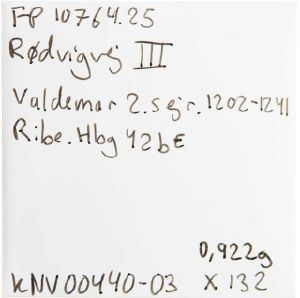 FP 10764.25
Rødvigvej III
Valdemar 2. Sejr. 1202-1241
Ribe. Hbg 42bE
0,922g
KNV00440-03 X132